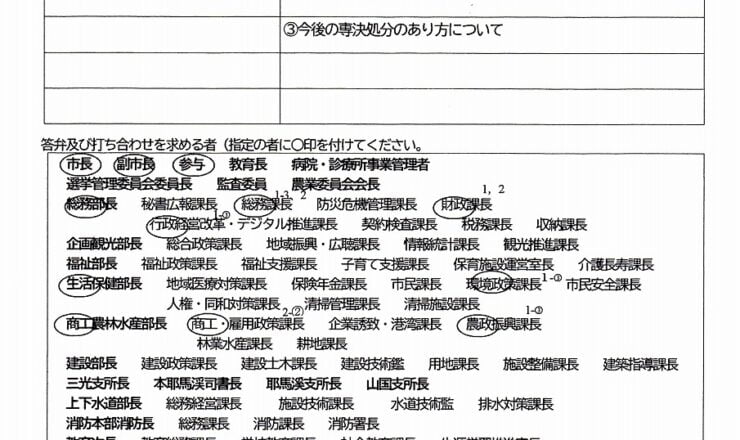 ③今後の専決処分のあり方について
答弁及び打ち合わせを求める者（指定の者に〇印を付けてください。
市長 副市長 参与 教育長 病院・診療所事業管理者
選挙管理委員会委員長 監査委員 農業委員会会長
総務部長 秘書広報課長 総務課長 1-3、2 防災危機管理課長 財政課長 1，2
行政経営改革・デジタル推進課長 1-① 契約検査課長 税務課長 収納課長
企画観光部長 総合政策課長 地域振興・広聴課長 情報統計課長 観光推進課長
福祉部長 福祉政策課長 福祉支援課長 子育て支援課長 保育施設運営室長 介護長寿課長
生活保健部長 地域医療対策課長 保険年金課長 市民課長 環境政策課長 1-① 市民安全課長
人権・同和対策課長 清掃管理課長 清掃施設課長
商工農林水産部長 商工・雇用政策課長 2-② 企業誘致・港湾課長 農政振興課長 1-①
林業水産課長 耕地課長
建設部長 建設政策課長 建設土木課長 建設技術鑑 用地課長 施設整備課長 建築指導課長
三光支所長 本耶馬渓司書長 耶馬渓支所長 山国支所長
上下水道部長 総務経営課長 施設技術課長 水道技術監 排水対策課長
消防本部消防長 総務課長 消防課長 消防署長